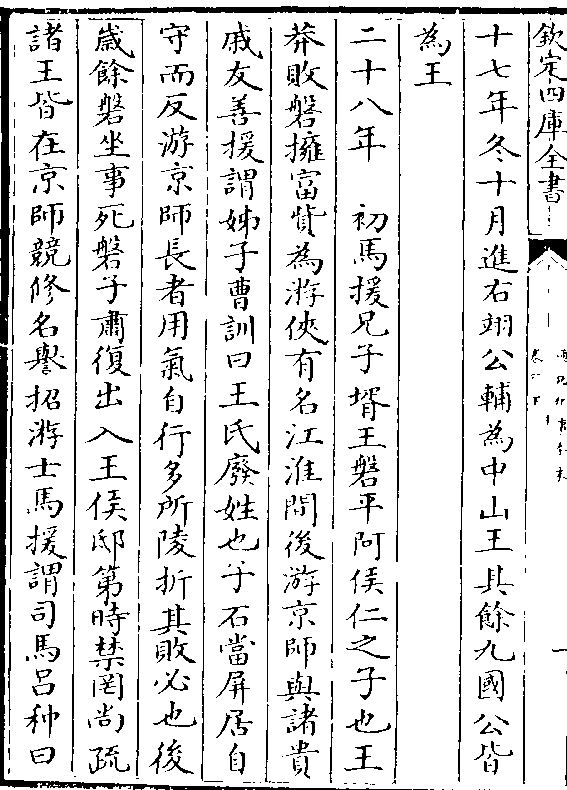 欽定四庫全書
十七年冬十月進右翊公輔為中山王其餘九國公皆
為王
二十八年　初馬援兄子壻王磐平阿侯仁之子也王
莽敗磐擁富貲為游俠有名江淮間後游京師與諸貴
戚友善援謂姊子曹訓曰王氏廢姓也子石當屏居自
守而反游京師長者用氣自行多所陵折其敗必也後
歲餘磐坐事死磐子肅復出入王侯邸第時禁罔尚疏
諸王皆在京師競修名譽招游士馬援謂司馬呂种曰